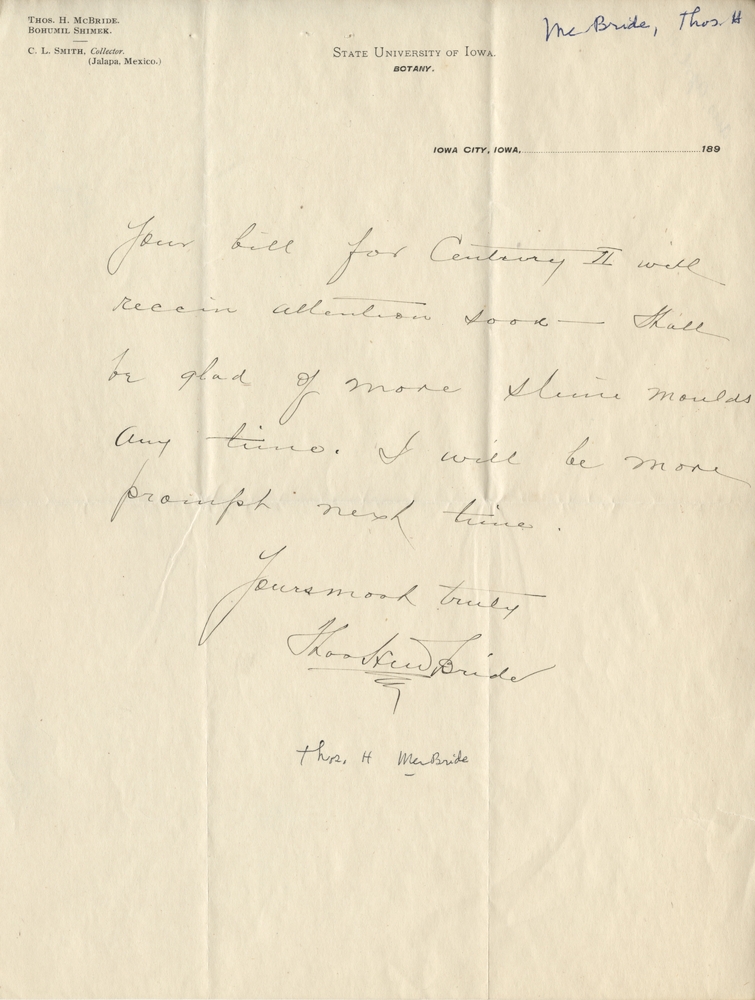 THOS. H. MCBRIDE.
BOHUMIL SHIMEK.
C. L. SMITH, Collector.
(Jalapa, Mexico.)
McBride, Thos. H
STATE UNIVERSITY OF IOWA.
BOTANY.
IOWA CITY, IOWA, 189
Your bill for Century II will
receive attention soon — Shall
be glad of more slime moulds
any time. I will be more
prompt next time.
Yours most truly
Thos H McBride
Thos. H McBride